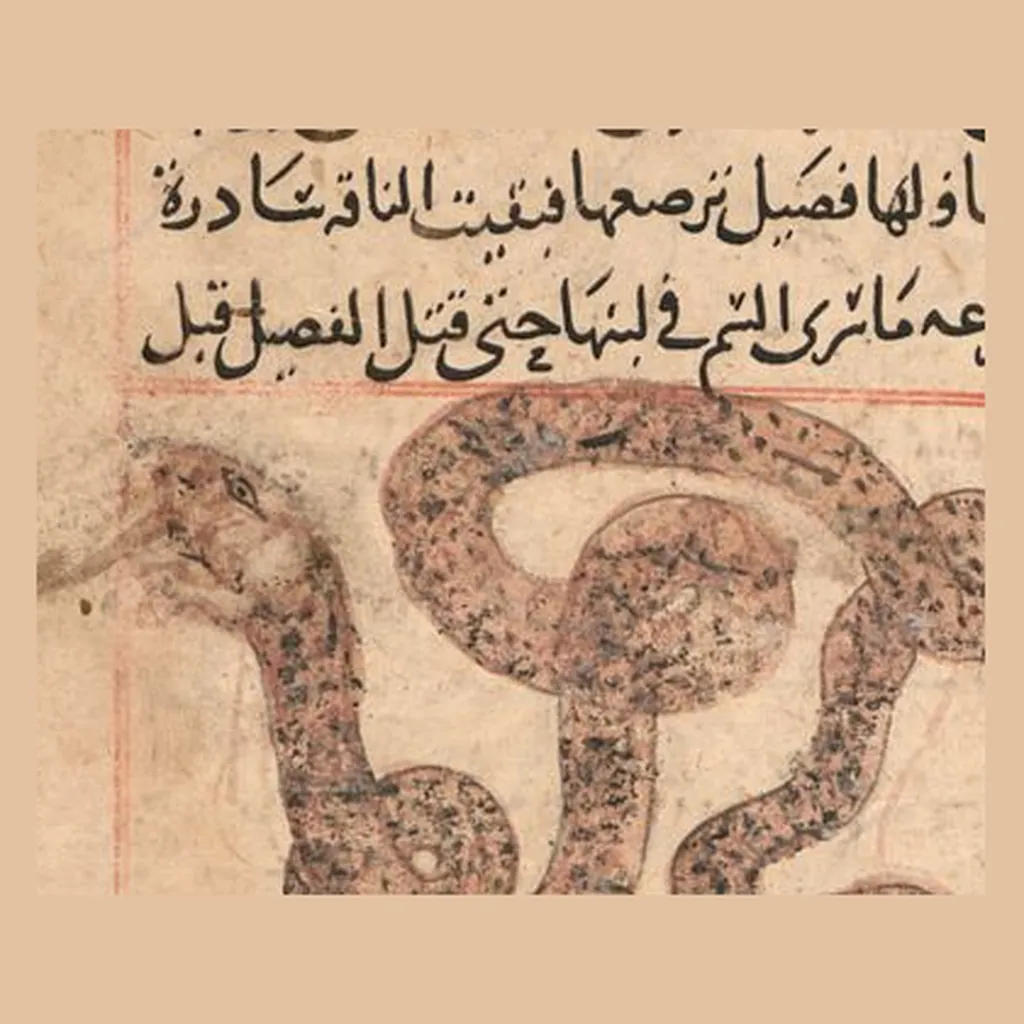 ولها فصيل ترضعها فبقيت الناقة سادرة
ما سرى السم في لبنها حتى قتل الفصيل قبل